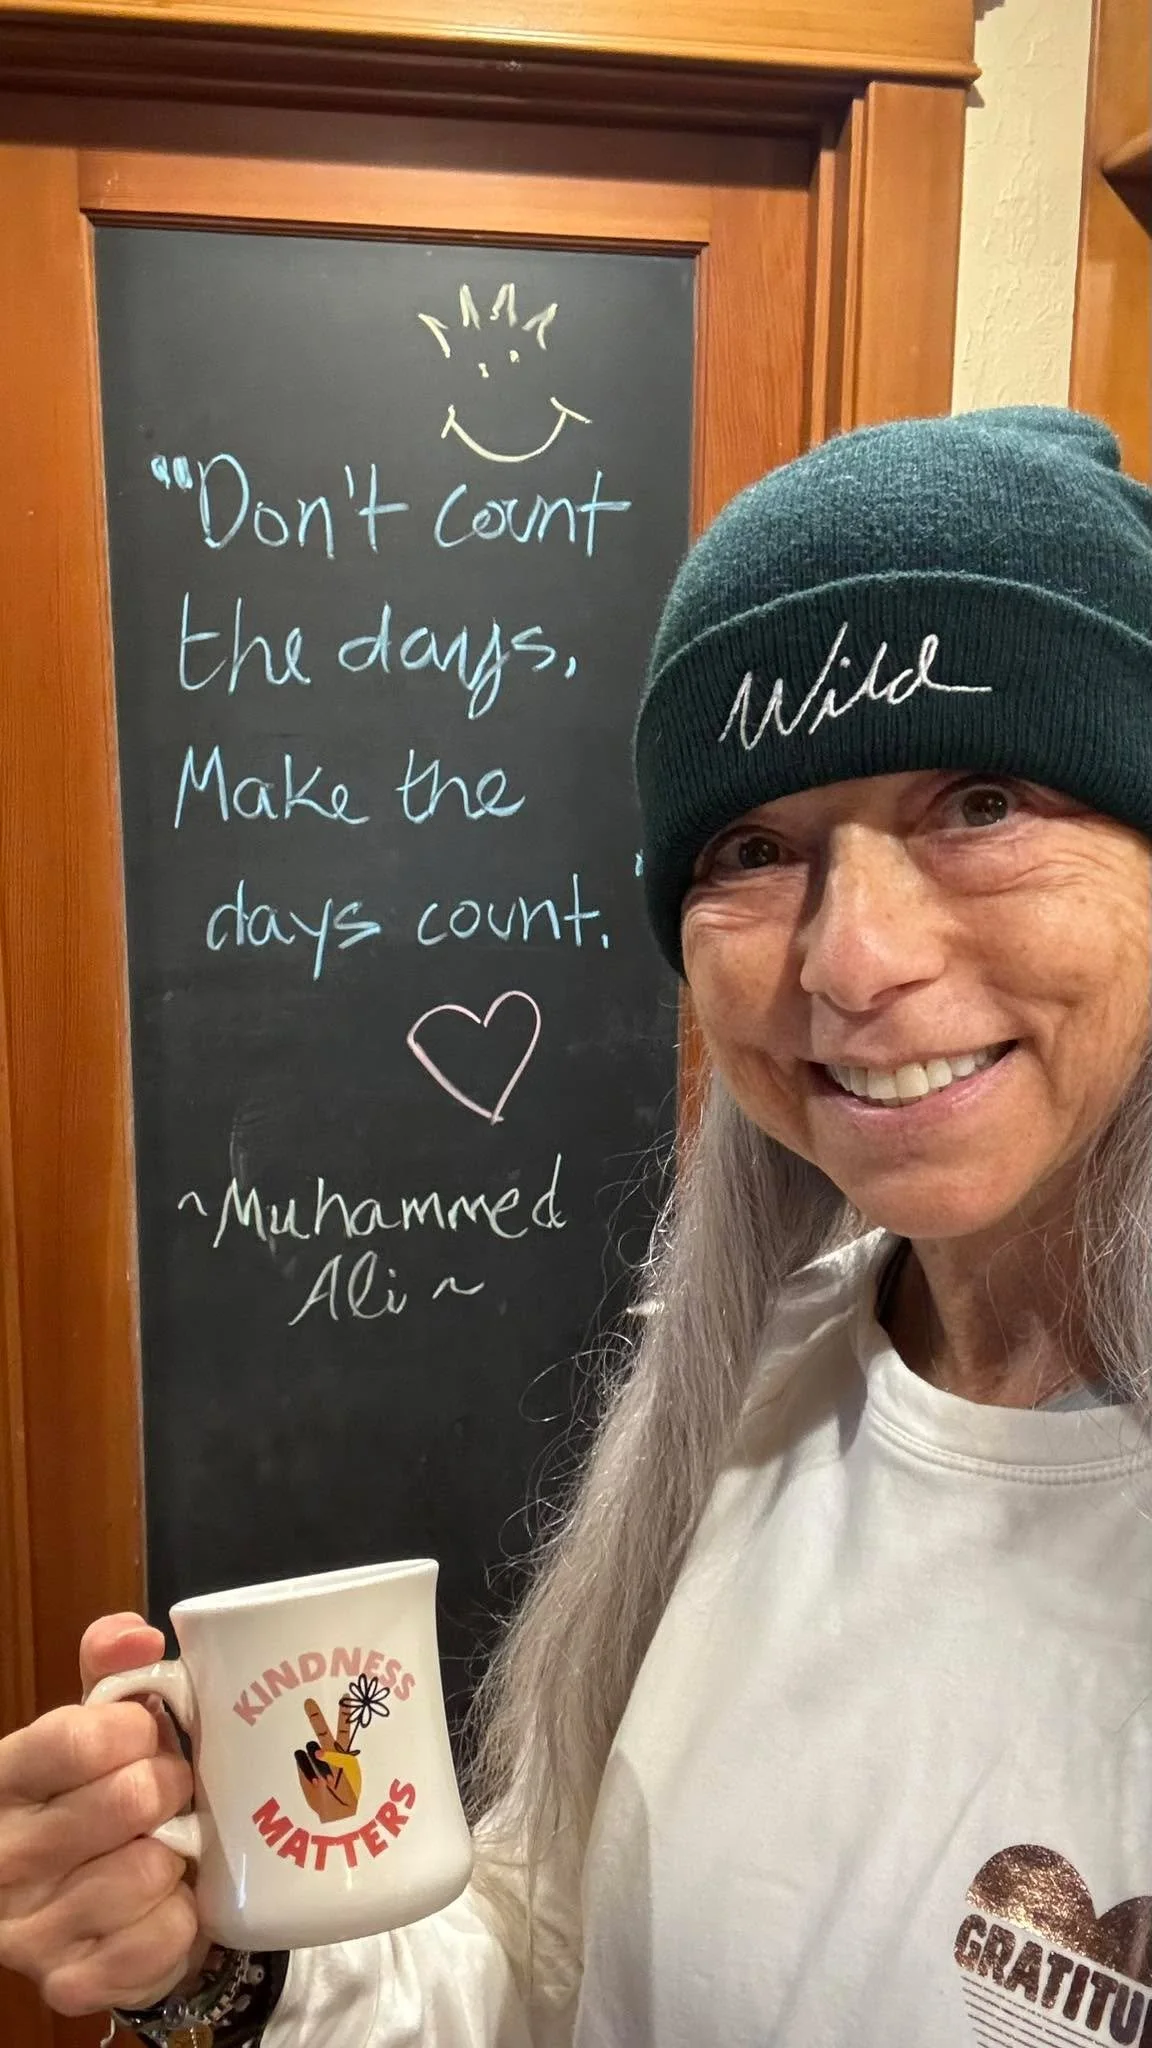 "Don't count
the days,
Make the
days count."
~Muhammed
Ali~
Wild
KINDNESS
MATTERS
GRATITU